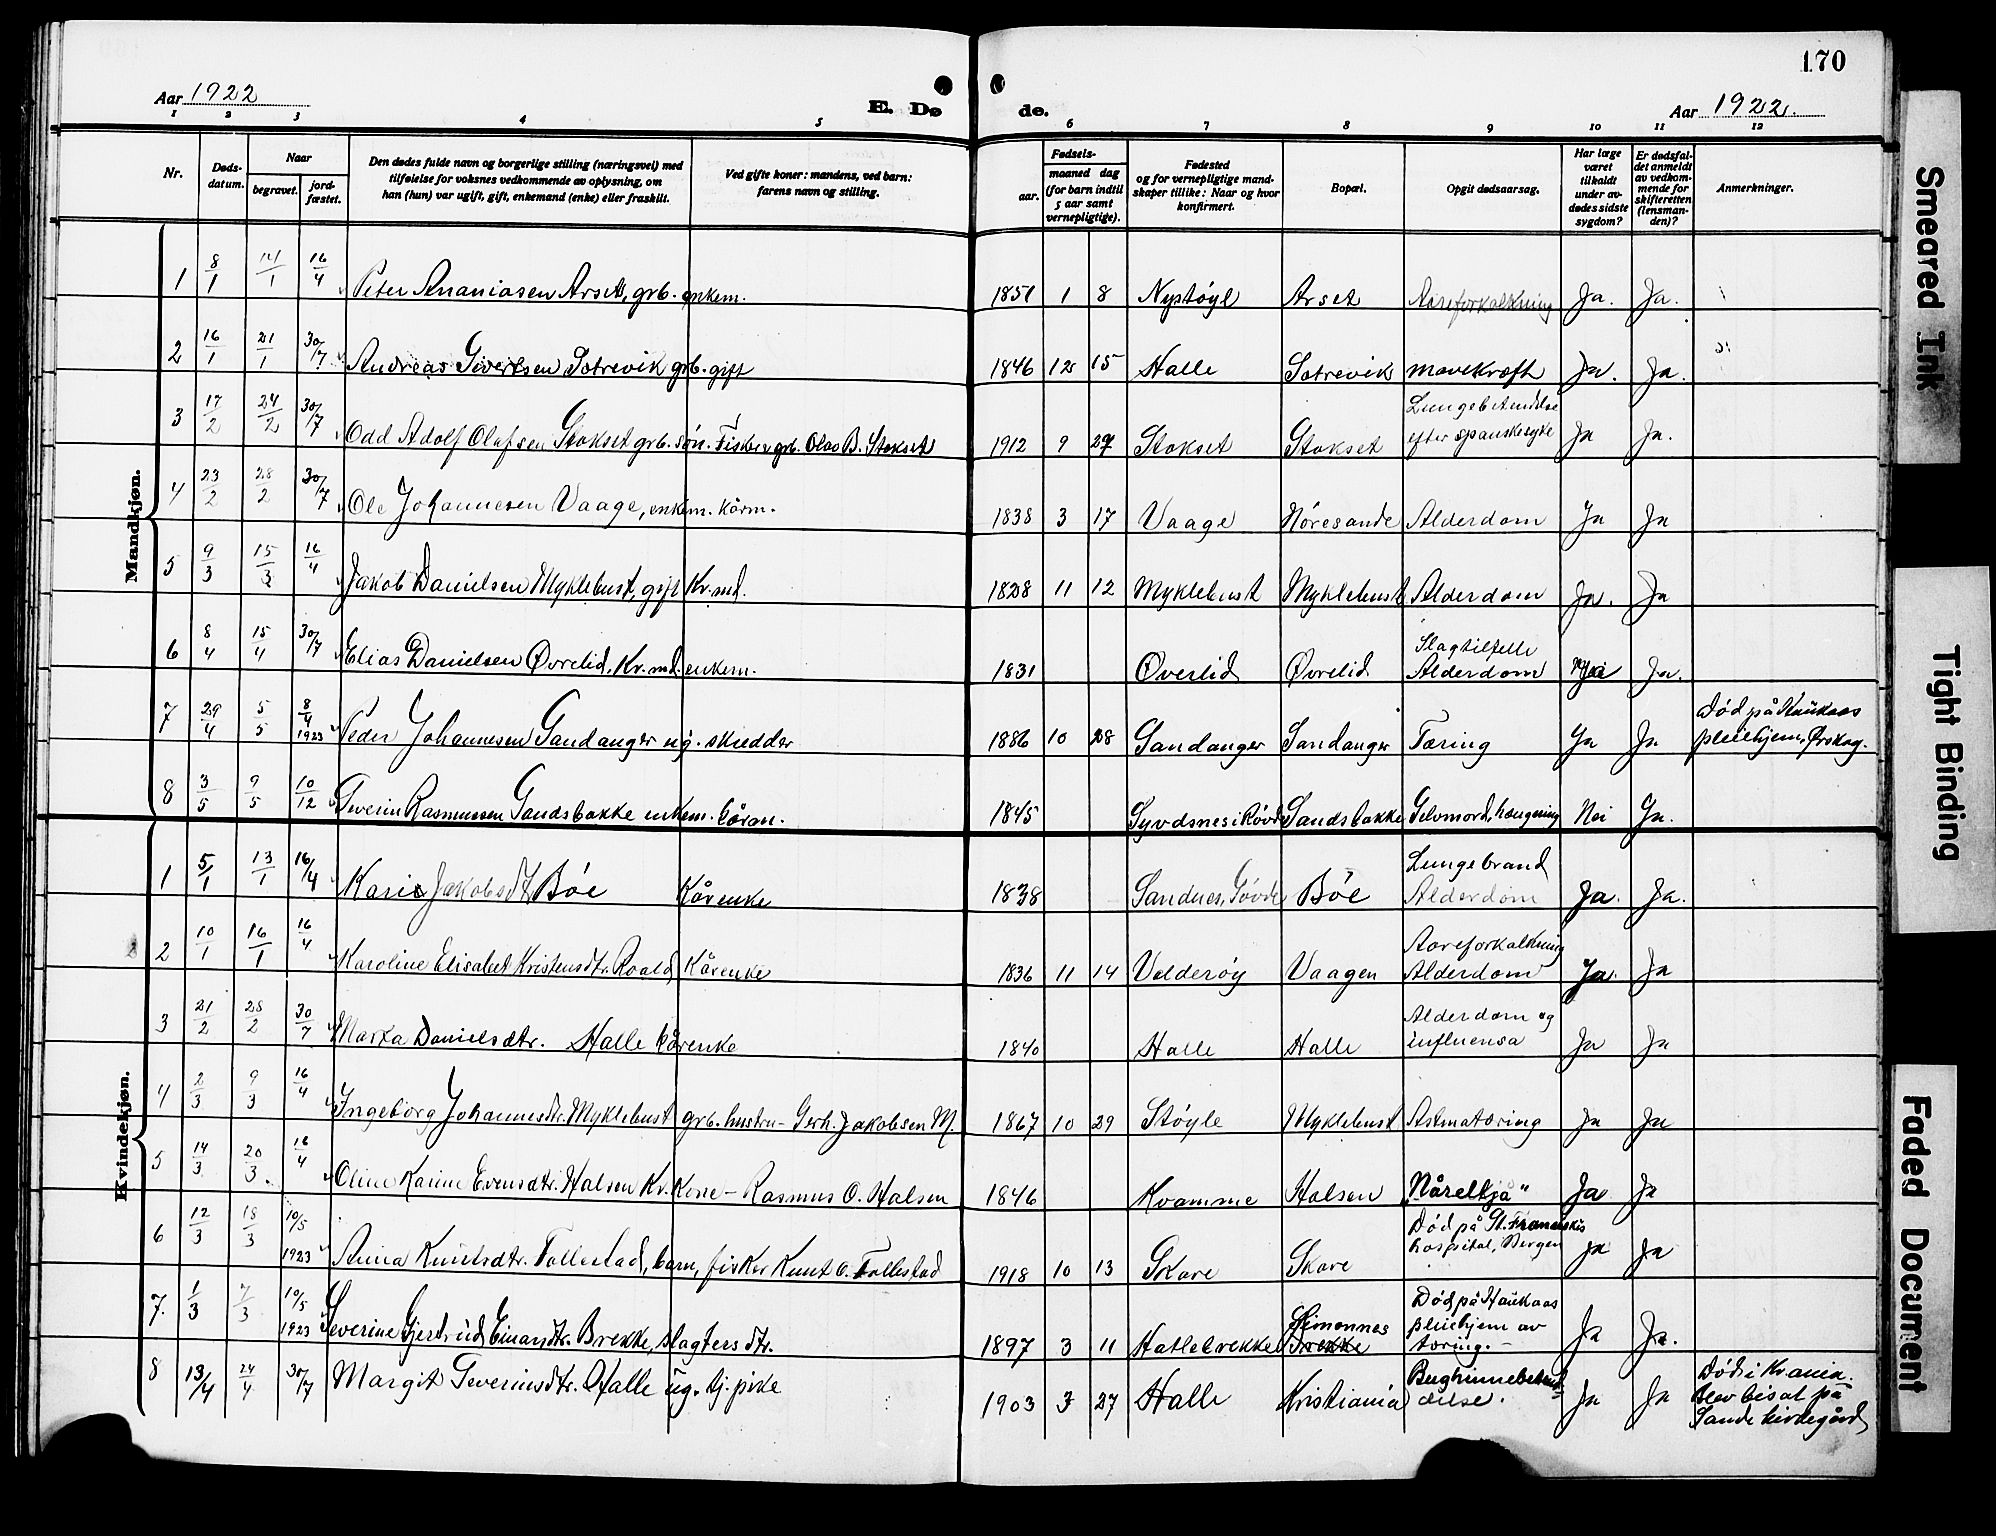 170
Aar 1922
E. Dø
de.
Aar 1922.
1 2 3 4 5 6 7 8 9 10 11 12
Nr.
Døds-
datum.
Naar
begravet.
jord-
fæstet.
Den dødes fulde navn og borgerlige stilling (næringsvei) med
tilføielse for voksnes vedkommende av oplysning, om
han (hun) var ugift, gift, enkemand (enke) eller fraskilt.
Ved gifte koner: mandens, ved barn:
farens navn og stilling.
Fødsels-
aar.
maaned dag
(for barn indtil
5 aar samt
vernepligtige).
Fødested
og for vernepligtige mand-
skaper tillike: Naar og hvor
konfirmert.
Bopæl.
Opgit dødsaarsag.
Har læge
været
tilkaldt
under av-
dødes sidste
sygdom?
Er dødsfal-
det anmeldt
av vedkom-
mende for
skifteretten
(lensman-
den)?
Anmerkninger.
Mandkjøn.
1 8/1 14/1 16/4 Peter Ananiasen Arset, grb. enkem. 1851 1 8 Nystøyl Arset Aareforkalkning Ja. Ja.
2 16/1 21/1 30/7 Andreas Sivertsen Sotrevik grb. gift 1846 12 15 Halle Sotrevik mavekræft Ja. Ja.
3 17/2 24/2 30/7 Odd Adolf Olafsen Stokset grb. søn. Fisker grb. Olav B. Stokset 1912 9 27 Stokset Stokset Lungebetændelse
efter spanskesyke Ja Ja.
4 23/2 28/2 30/7 Ole Johannesen Vaage, enkem. kårm. 1838 3 17 Vaage Nøresande Alderdom Ja Ja
5 9/3 15/3 16/4 Jakob Danielsen Myklebust, gift Kv.md. 1828 11 12 Myklebust Myklebust Alderdom Ja. Ja
6 8/4 15/4 30/7 Elias Danielsen Øvrelid, Kv.md. enkem. 1831 Øverlid Øvrelid Slagtilfelle
Alderdom Ja.
7 29/4 5/5 8/4 1923 Peder Johannesen Sandanger ug. skredder 1886 10 28 Sandanger Sandanger Tæring Ja Ja Død på Haukaas
pleiehjem, Ørskog.
8 3/5 9/5 10/12 Severin Rasmussen Sandsbakke enkem. 1845 Syvdsnes i Røvde Sandsbakke Selvmord, hængning Nei Ja.
Kvindekjøn.
1 5/1 13/1 16/4 Karie Jakobsdt. Bøe Kårenke 1838 Sandnes, Bøe Lungebrand
Alderdom Ja. Ja.
2 10/1 16/1 16/4 Karoline Elisabet Kristensdtr. Roald, Kårenke 1836 11 14 Valderøy Vaagen Aareforkalkning
Alderdom Ja. Ja
3 21/2 28/2 30/7 Marta Danielsdtr. Halle kårenke 1840 Halle Halle Alderdom og
influensa Ja Ja
4 2/3 9/3 16/4 Ingeborg Johannesdtr. Myklebust grb. hustru - Gerh. Jakobsen M. 1867 10 29 Støyle Myklebust Astmatæring Ja Ja
5 14/3 20/3 16/4 Oline Karine Evensdtr. Halsen Kv. Kone - Rasmus O. Halsen 1846 Kvamme Halsen Ja Ja
6 12/3 18/3 10/5 1923 Anna Knutsdtr. Follestad, barn, fisker Knut O. Follestad 1918 10 13 Skare Skare Død på St. Franciskis
hospital, Bergen Ja Ja
7. 1/3 7/3 10/5 1923 Severine Gjertrud Einarsdtr. Brekke, slagters dtr. 1897 3 11 Hatlebrekke Simonnes
Brekke Død på Haukaas
pleiehjem av
tæring. - Ja Ja.
8 13/4 24/4 30/7 Margit Severinsdtr. Halle ug. tj. pike 1903 3 27 Halle Kristiania Bughinnebetæn-
delse. Ja Ja Død i Kr.ania.
Blev bisat på
Sande kirkegård
Smeared Ink
Tight Binding
Faded Document